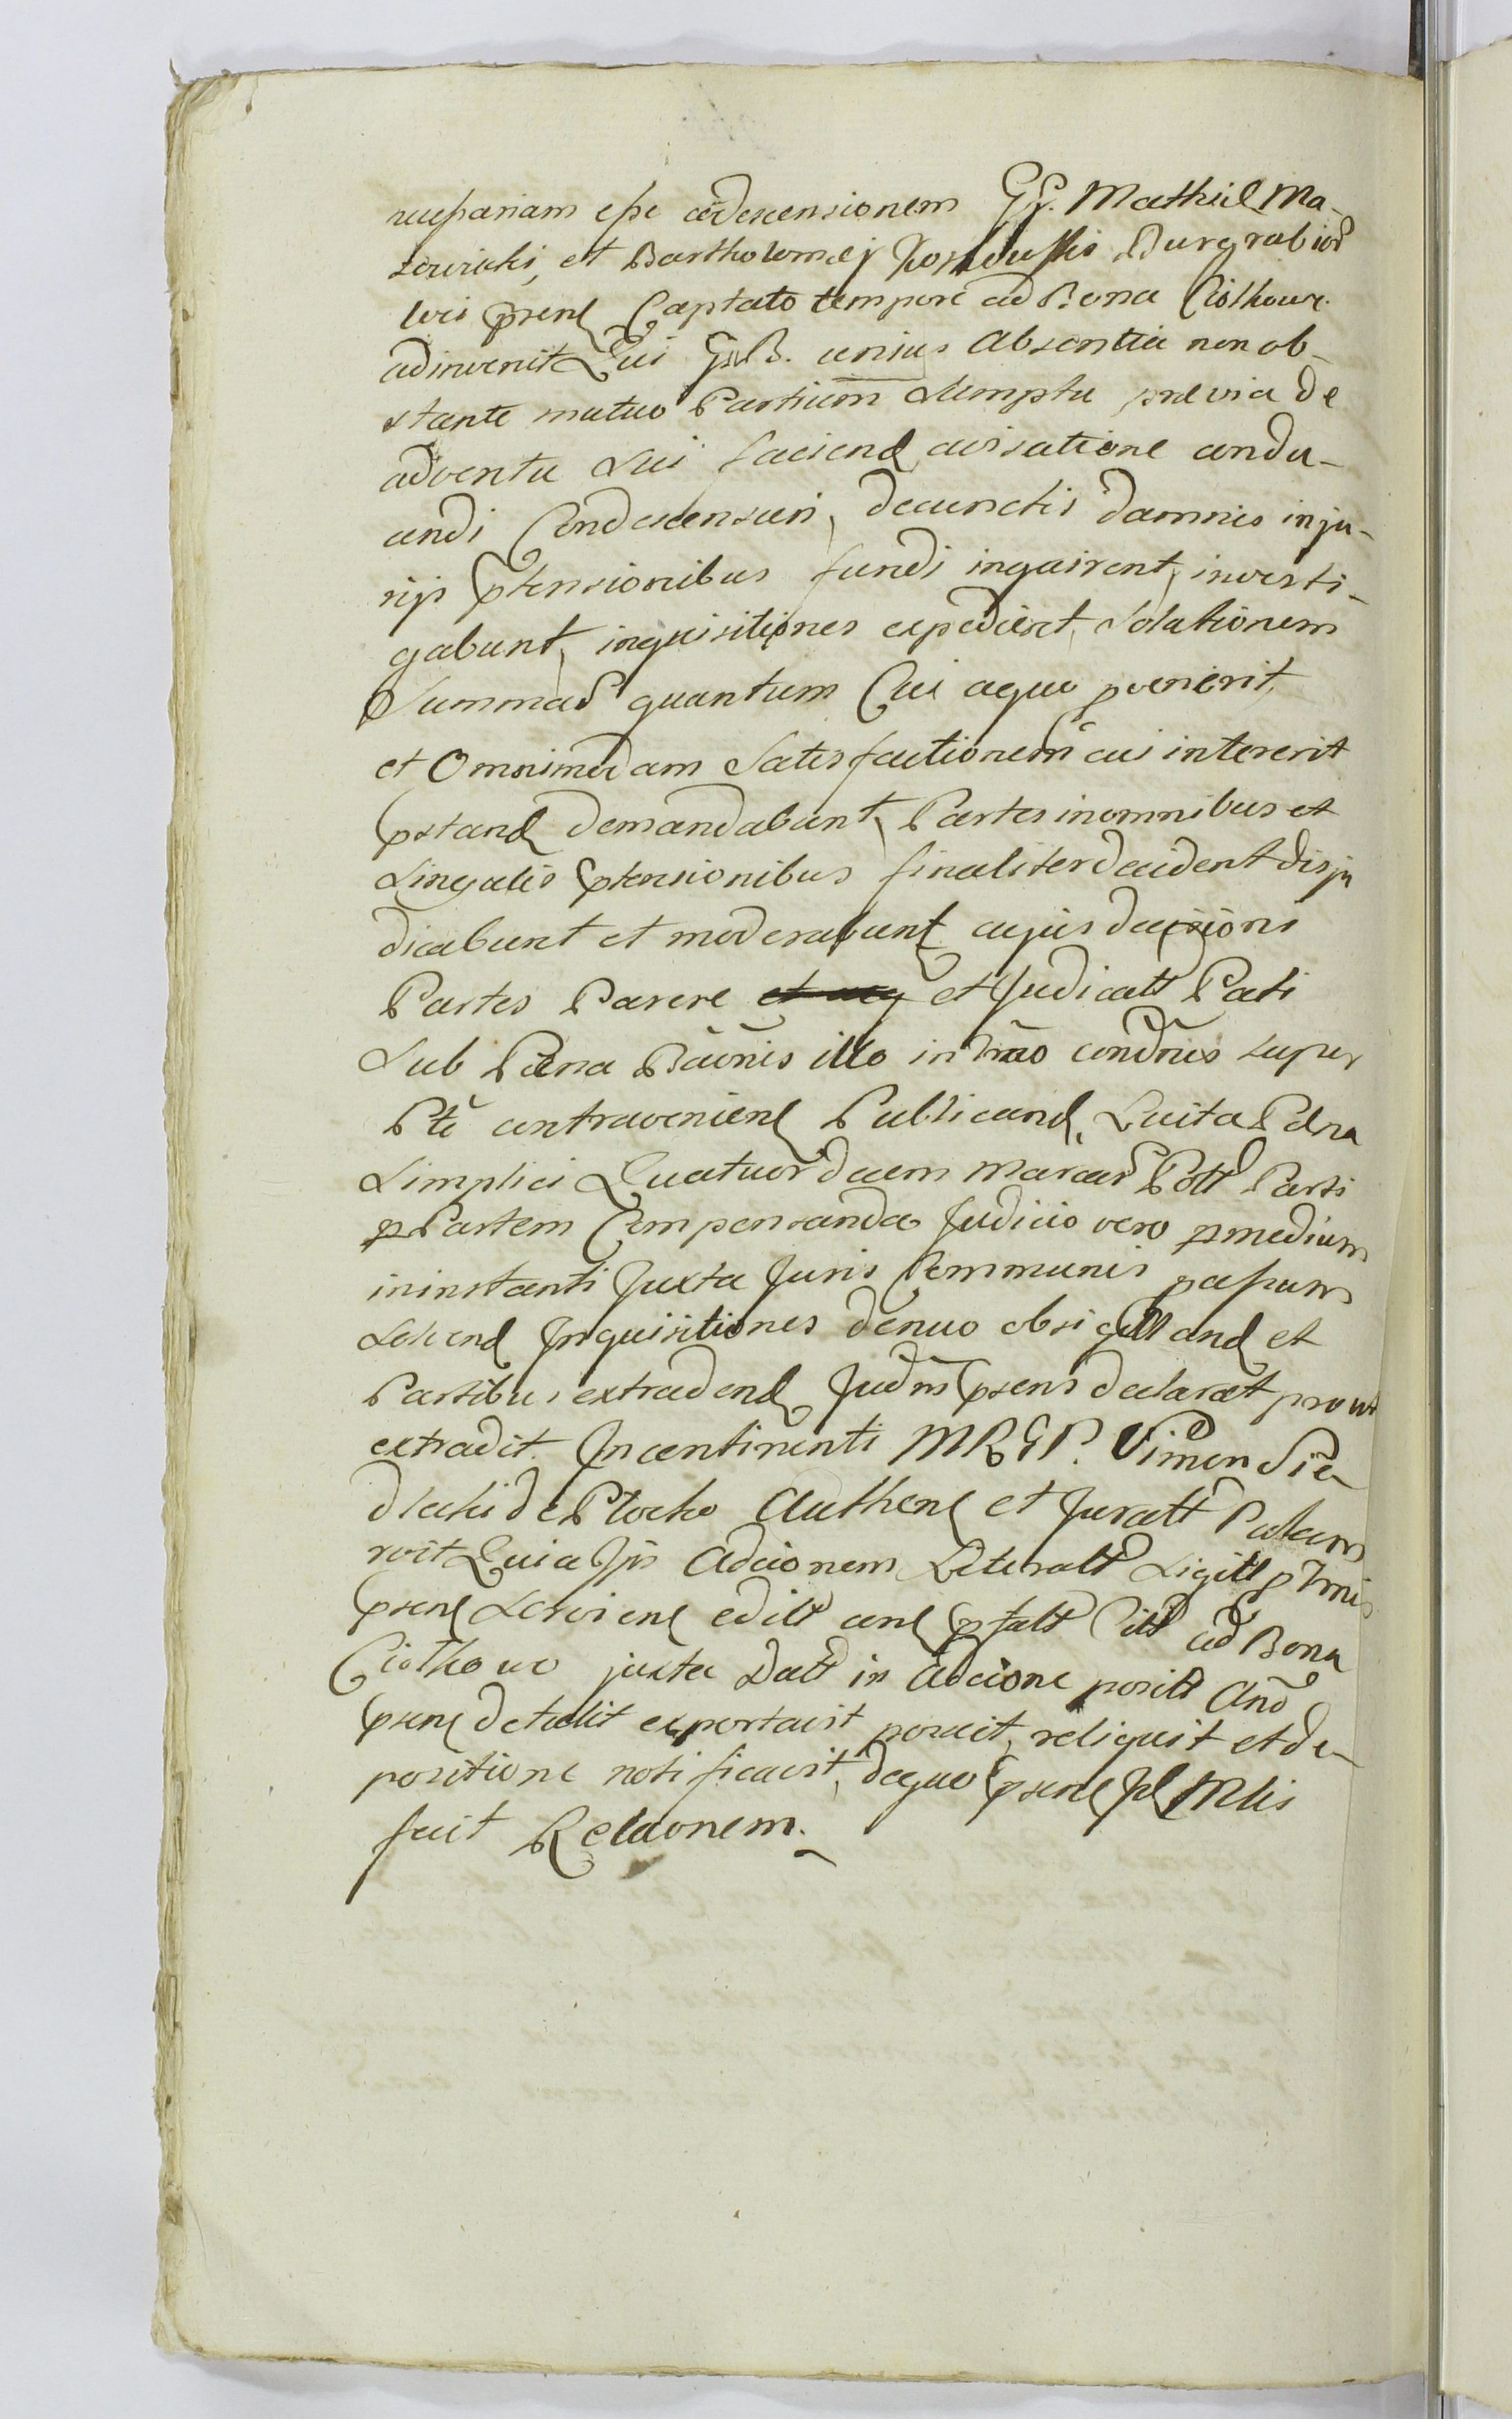 necessariam esse condescensionem GG. Mathiæ Ma-
zowicki, et Bartholomæj Burgrabior
loci psent Captato tempore ad Bona Ciołkowo
adinvenit Qui GB. unius absentia non ob-
stante mutuo Partium sumptu prævia de
adventu sui faciend avisatione condu-
cendi Condescensuri, de cunctis damnis inju-
rijs ptensionibus fundi inquirent, investi-
gabunt, inquisitiones expedient, solutionem
Summar quantum Cui æquo venerit,
et Omnimodam Satisfactionem cui intererit
pstand demandabunt, Partes in omnibus et
singulis ptensionibus finaliter decident disju
dicabunt et moderabunt cujus decisioni
Partes Parere et Judicatt Pati
sub Pæna Bãnis illo in Trão condrũs super
Pte contravenient Publicand, Lucita Pæna
simplici Quatuordecim Marcar Poll Parti
p Partem Compensanda Judicio vero p medium
in instanti Juxta Juris Communis passum
solvend Inquisitiones denuo obsigilland et
Partibus extradend Judm psens declarat prout
extradit. In continenti MRGP. Simon Sie-
dlecki de Płocko Authent et Juratt Palam
rvit Quia Ips Adcionem Literatt Sigill
psent Serviens editt cum psatt ad Bona
Ciołkowo juxta Datt in Adcione positt Ann
psent detulit exportavit posuit, reliquit et de
positione notificavit, de quo psent Mlis
fecit Relaonem.